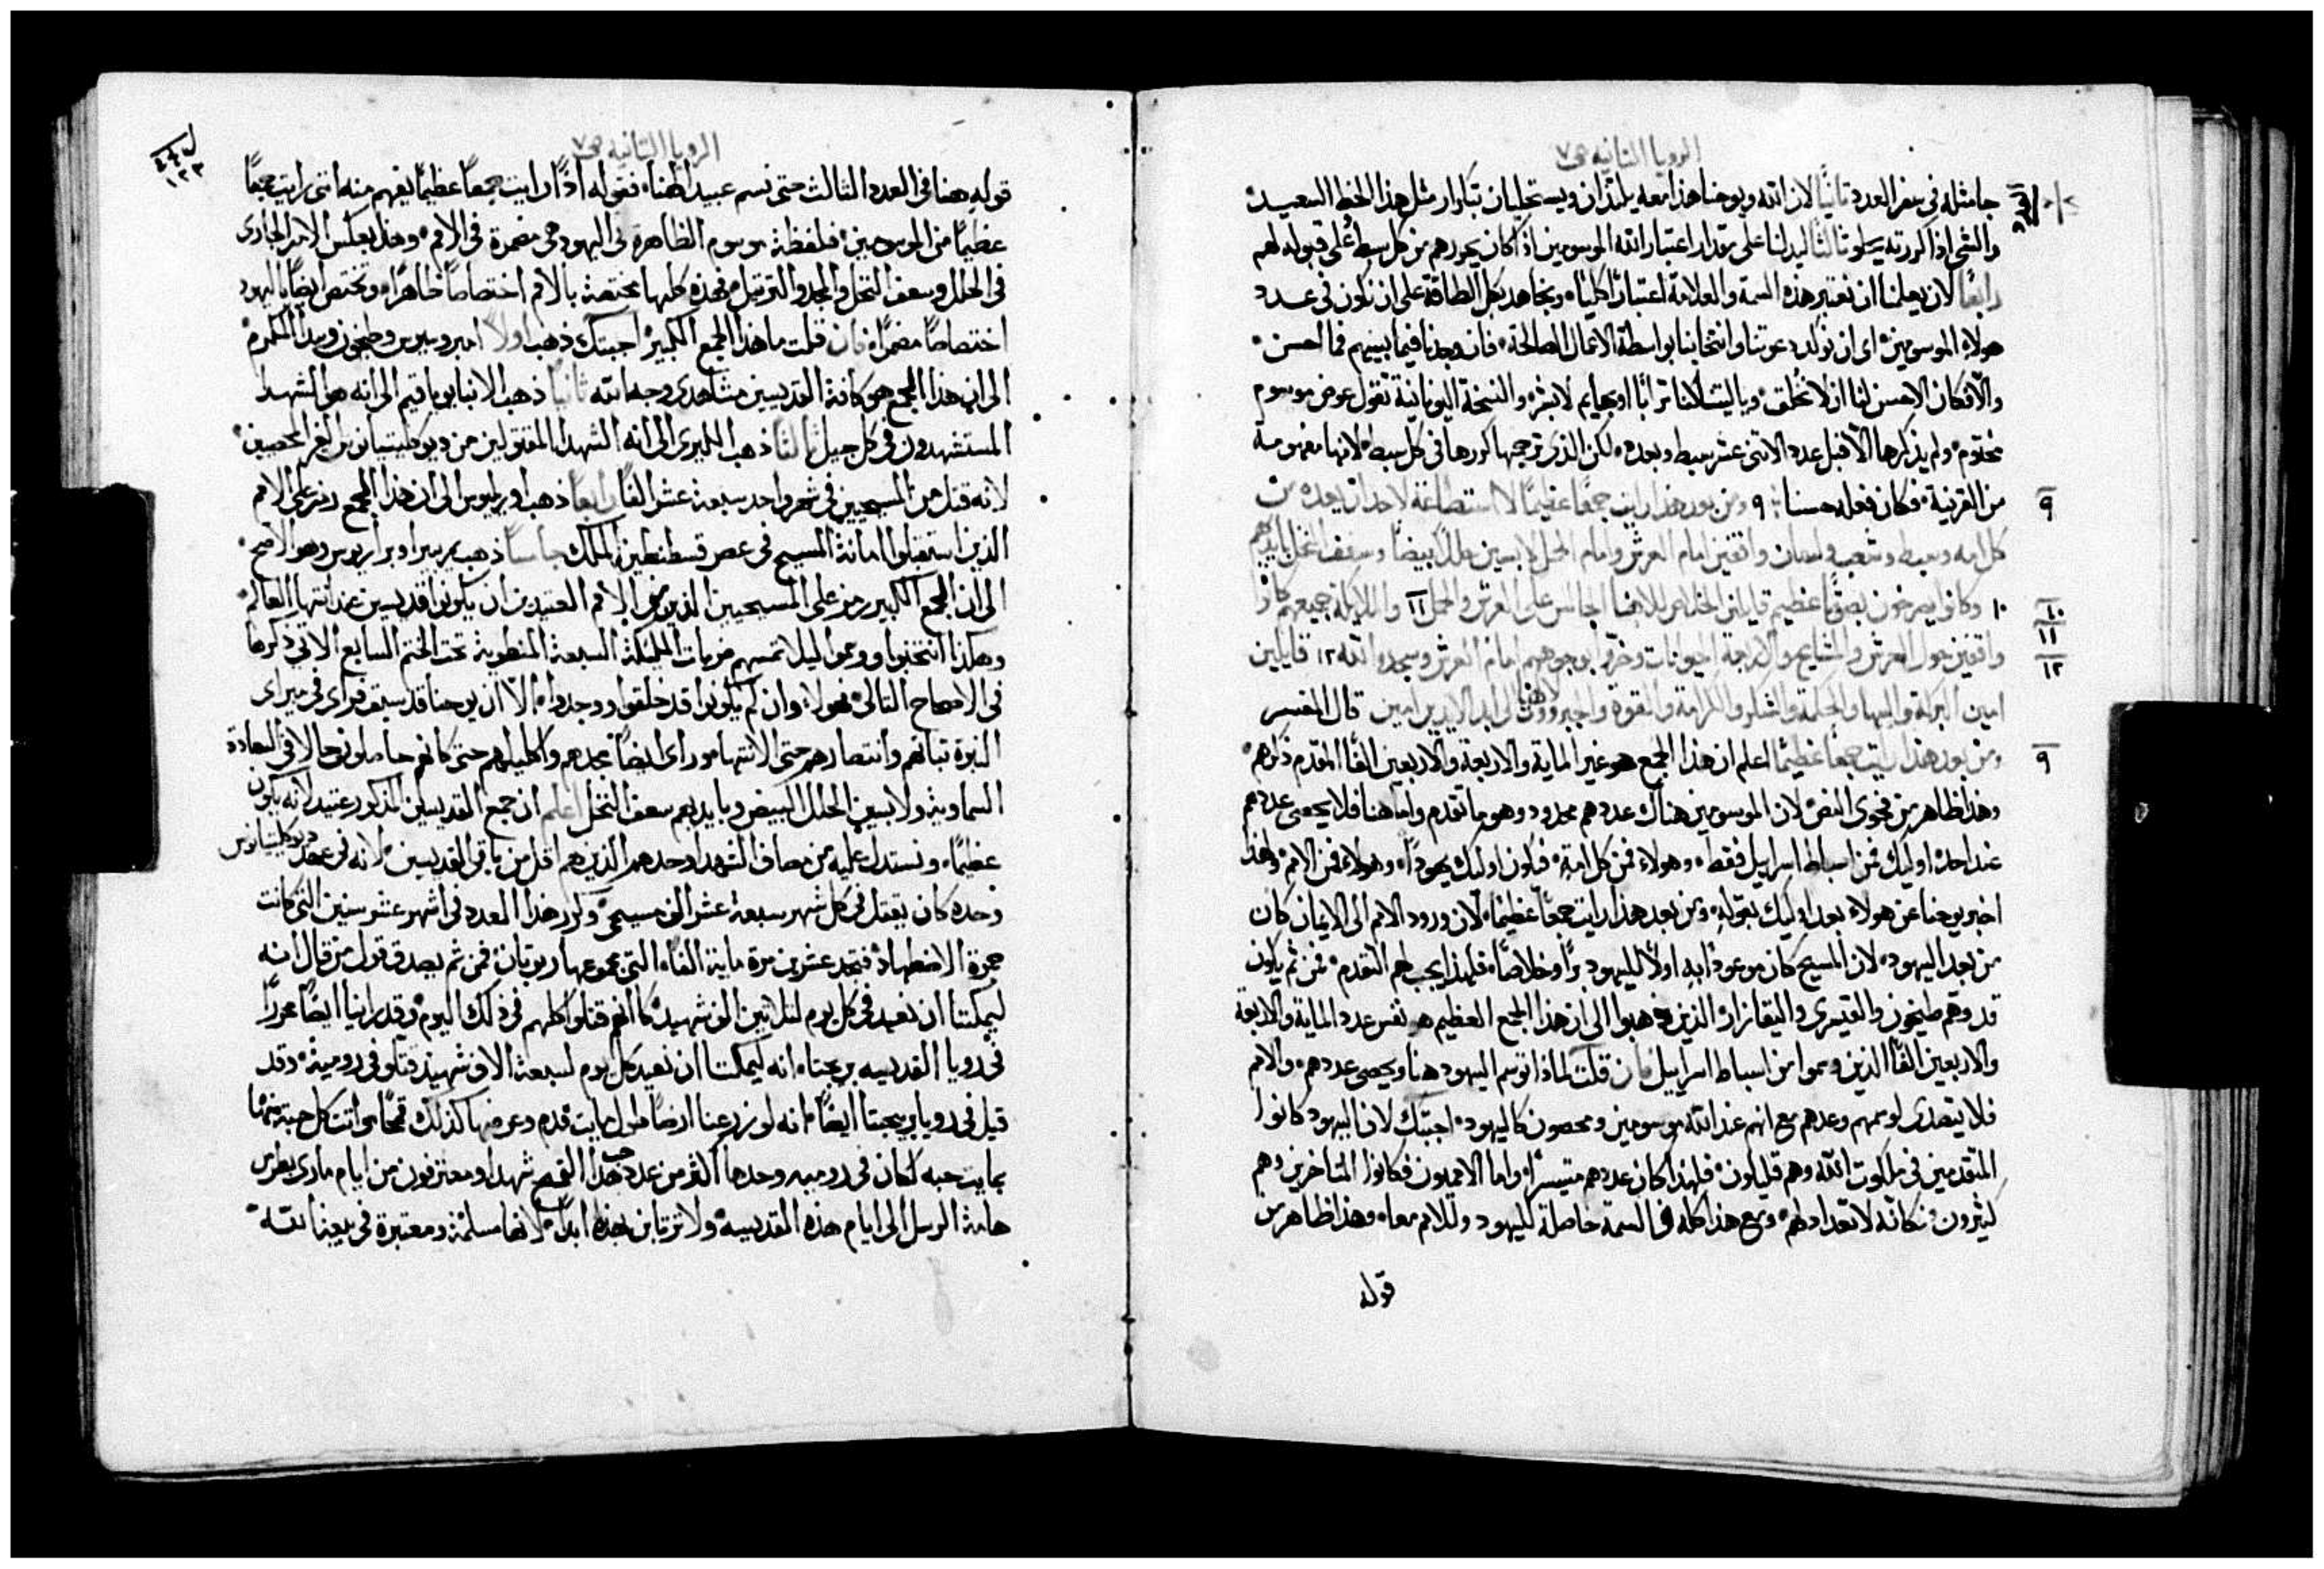 الرويا الثانيه ص٧
جا مثله في سفر العدد ثانيًا لان الله ويوحنا هذا معه يلتذان ويستحليان تكرار مثل هذا الخط السعيد
والشي اذا كررته يحلو ثالثًا ليدلنا على مقدار اعتبار الله الموسومين اذ كان يحررهم من كل سبط على قبوله لهم
رابعًا لان يعلمنا ان نعتبر هذه السمة والعلامة اعتبارًا كليًا ونجاهد بكل الطاقة على ان نكون في عدد
هولاء الموسومين اي ان نوكد دعوتنا وانتخابنا بواسطة الاعمال الصالحة فان وجدنا فيما بينهم فما احسن
والا فكان الاحسن لنا ان لا نخلق ويا ليتنا كنا ترابًا او بهايم لا بشر والنسخة اليونانية تقول عوض موسوم
مختوم ولم يذكرها الا قبل عدد الاثني عشر سبط وبعده لكن الذي ترجمها كررها في كل سبط لانها مفهومة
٩ من القرينة فكان فعله حسنا ٩ ومن بعد هذا رايت جمعًا عظيمًا لا استطاعة لاحد ان يعده من
كل امه وسبط وشعب ولسان واقفين امام العرش وامام الحمل لابسين حللا بيضًا وسعف النخل بايديهم
١٠ ١٠ وكانوا يصرخون بصوت عظيم قايلين الخلاص لالهنا الجالس على العرش وللحمل ١١ والملايكة جميعهم كانوا
١١
١٢ واقفين حول العرش والمشايخ والاربعة الحيوانات وخروا بوجوههم امام العرش وسجدوا لله ١٢ قايلين
امين البركة والبها والحكمة والشكر والكرامة والقوة والجبروت لالهنا الى ابد الابدين امين قال المفسر
٩ ومن بعد هذا رايت جمعًا عظيمًا اعلم ان هذا الجمع هو غير الماية والاربعة والاربعين الفًا المقدم ذكرهم
وهذا ظاهر من فحوى النص لان الموسومين هناك عددهم محدود وهو ما تقدم واما هنا فلا يحصى عددهم
عند احد اوليك فمن اسباط اسراييل فقط وهولاء فمن كل امة فيكون اوليك يهودًا وهولاء فمن الامم وهذا
اخبر يوحنا عن هولاء بعد اوليك بقوله ومن بعد هذا رايت جمعًا عظيمًا لان ورود الامم الى الايمان كان
من بعد اليهود لان المسيح كان موعودًا به اولًا لليهود برًا وخلاصًا فلهذا يجب لهم التقدم فمن ثم يكون
قد وهم طيخون والقيسري والبقازار الذين ذهبوا الى ان هذا الجمع العظيم هو نفس عدد الماية والاربعة
والاربعين الفًا الذين وسموا من اسباط اسراييل فان قلت لماذا توسم اليهود هنا ويحصى عددهم والامم
فلا يتصدى لوسمهم وعدهم مع انهم عند الله موسومين ومحصون كاليهود اجبتك لان اليهود كانوا
المتقدمين في ملكوت الله وهم قليلون فلهذا كان عددهم متيسرًا واما الامميون فكانوا المتاخرين وهم
كثيرون وكانه لا تعداد لهم ومع هذا كله فالسمة حاصلة لليهود وللامم معا وهذا ظاهر من
قوله
الرويا الثانيه ص٧
١٢٣
قوله هنا في العدد الثالث حتى نسم عبيد الهنا فقوله اذًا رايت جمعًا عظيمًا يفهم منه انني رايت جمعًا
عظيمًا من الموسومين فلفظة موسوم الظاهرة في اليهود هي مضمرة في الامم وهذا بعكس الامر الجاري
في الحلل وسعف النخل والمجد والترتيل فهذه كلها مختصة بالامم اختصاصًا ظاهرًا وتختص ايضًا باليهود
اختصاصًا مضمرًا فان قلت ما هذا الجمع الكبير اجبتك ذهب اولًا امبروسيوس وطيخون وبيدا المكرم
الى ان هذا الجمع هو كافة القديسين مشاهدي وجه الله ثانيًا ذهب الانبا يواقيم الى انه هو الشهدا
المستشهدون في كل جيل ثالثًا ذهب الليري الى انه الشهدا المقتولين من ديوكليتيانوس الغير المحصيين
لانه قتل من المسيحيين في شهر واحد سبعة عشر الفًا رابعًا ذهب اوريليوس الى ان هذا الجمع رمز على الامم
الذين استقبلوا امانة المسيح في عصر قسطنطين الملك خامسًا ذهب بيريرا وهو الاصح
الى ان الجمع الكبير رمز على المسيحيين الذين من الامم العتيدين ان يكونوا قديسين عند انتها العالم
وهكذا انتخبوا ووسموا ليلا تمسهم ضربات الملايكة السبعة المنطوية تحت الختم السابع الاتي ذكرها
في الاصحاح التالي فهولاء وان لم يكونوا قد خلقوا ووجدوا الا ان يوحنا قد سبق فراى في ميراى
النبوة ثباتهم وانتصارهم حتى الانتها وراى ايضًا مجدهم واكليلهم حتى كانهم حاصلون حالا في السعادة
السماوية ولابسين الحلل البيض وبايديهم سعف النخل اعلم ان جمع القديسين المذكور عتيد لانه يكون
عظيمًا ونستدل عليه من مصاف الشهدا وحدهم الذين هم اقل من باقي القديسين لانه في عهد ديوكليتيانوس
وحده كان يقتل في كل شهر سبعة عشر الف مسيحي وكرر هذا العدد في اشهر عشر سنين التي كانت
جمرة الاضطهاد فتجد عشرين مرة ماية الفًا التي مجموعها ربوتان فمن ثم يصدق قول من قال انه
ليمكننا ان نعيد في كل يوم لثلاثين الف شهيد كانهم قتلوا كلهم في ذلك اليوم وقد راينا ايضًا محررًا
في رويا القديسه بريجتا انه ليمكننا ان نعيد كل يوم لسبعة الاف شهيد قتلو في رومية وقد
قيل في رويا بريجتا ايضًا انه لو زرعنا ارضًا طول ماية قدم وعرضها كذلك قمحًا واتت كل حبة منها
بماية حبه لكان في روميه وحدها اكثر من عدد حب هذا القمح شهدا ومعترفون من ايام ماري بطرس
هامة الرسل الى ايام هذه القديسه ولا ترتابن بهذا ابدًا لانها مسلمة ومعتبرة في بيعة الله